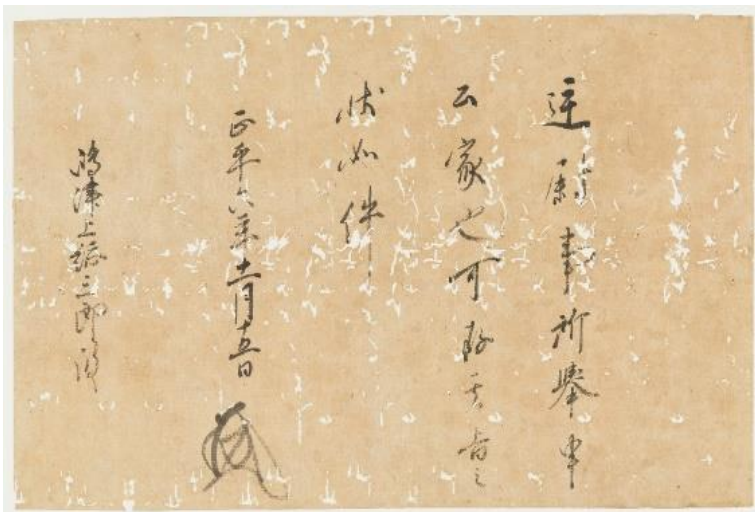 還補事所挙申
公家也可存其旨之
状如件
正平六年十二月十五日
嶋津上総三郎殿